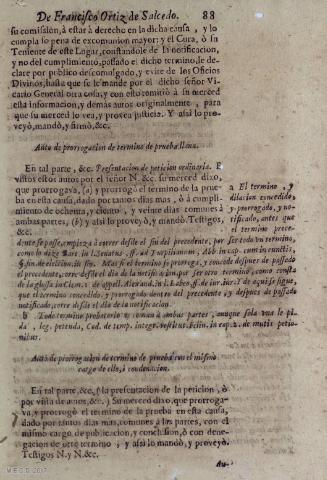 De Francisco Ortiz de Salcedo. 88
su comission, à estar à derecho en la dicha causa, y lo
cumpla so pena de excomunion mayor; y el Cura, ò su
Teniente de este Lugar, constandole de la notificacion,
y no del cumplimiento, passado el dicho termino, le de-
clare por publico descomulgado, y evite de los Oficios
Divinos, hasta que se le mande por el dicho señor Vi-
cario General otra cosa, y con esto remitiò à su merced
esta informacion, y demàs autos originalmente, para
que su merced lo vea, y provea justicia. Y assi lo pro-
veyò, mandò, y firmò, &c.
Auto de prorrogacion de termino de prueba llana.
En tal parte, &c. Presentacion de peticion ordinaria. E
vistos estos autos por el señor N. &c. su merced dixo,
que prorrogava, (a) y prorrogò el termino de la prue-
ba en esta causa, dado por tantos dias mas, ò à cumpli-
miento de ochenta, y ciento, y veinte dias comunes à
ambas partes, (b) y assi lo proveyò, y mandò. Testigos,
&c.
a El termino, y
dilacion concedido,
y prorrogado, y no-
tificado, antes que
el termino prece-
dente se passe, empieza à correr desde el fin del precedente, por ser todo un termino,
como lo dize Bart. in l. Senatus, ff. ad Turpilianum, Abb. in cap. cum in
§. fin. de elect. in fin. Mas si el termino se prorroga, y concede despues de passado
el precedente, corre desde el dia de la notificacion, por ser otro termino, como consta
de la glossa in Clem. 2. de appell. Alexand. in l. ff. de iur. iur. Y de aqui se sigue,
que el termino concedido, y prorrogado dentro del precedente, y despues de passado
notificado, corre desde el dia de la notificacion.
b Todo termino probatorio es comun à ambas partes, aunque sola una le pi-
da, leg. petenda, Cod. de temp. integr. restitut. in cap. 2. de mutis petio-
nibus.
Auto de prorrogacion de termino de prueba con el mismo
cargo de ello, ò condenacion.
En tal parte, &c. (la presentacion de la peticion, ò
por vista de autos, &c.) Su merced dixo, que prorroga-
va, y prorrogò el termino de la prueba en esta causa,
dado por tantos dias mas, comunes à las partes, con el
mismo cargo de publicacion, y conclusion, ò con dene-
gacion de otro termino, y assi lo mandò, y proveyò.
Testigos N. y N. &c.
Au-
M.E.C.D. 2017